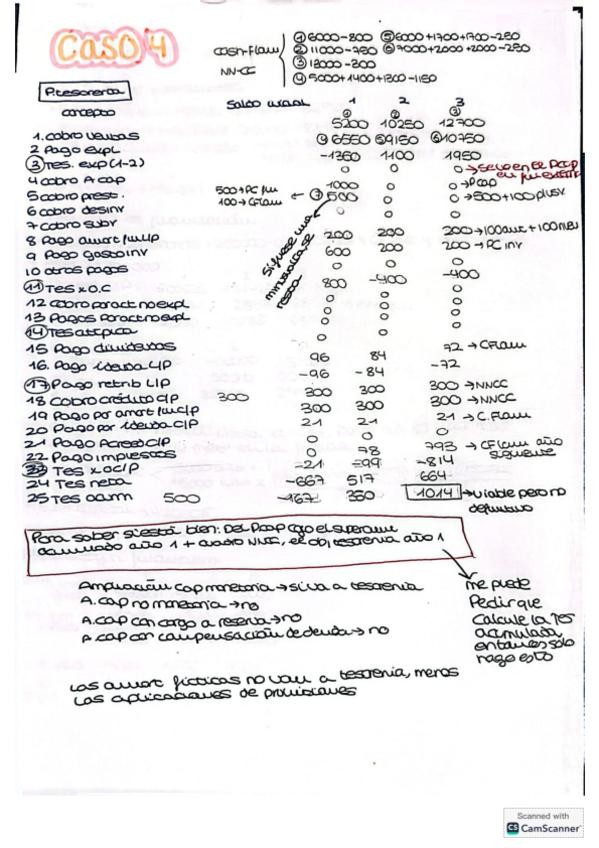 CASO 4
cash-flow
NN-CC
① 6000-800 ⑤ 6000+1700+1700-250
② 11000-750 ⑥ 7000+2000+2000-250
③ 13000-300
④ 5000+1400+1300-1150
P.tesorería
concepto saldo inicial 1 2 3
① 5200 ② 10250 ③ 12700
1. cobro ventas
④ 6550 ⑤ 9150 ⑥ 10750
2 Pago expl.
③ Tes. exp (1-2) -1350 1100 1950
4 cobro A cap 0 0 0
5 cobro prest. 1000 0 0 → Pcap
6 cobro desinv 500+PC 100→CFlow ← ⑦ 500 0 0 → 500+100 plusv
7 cobro subv 0 0 0
8 Pago amort 200 200 200 → 100
9 Pago gasto inv 600 200 200 → PC inv
10 otros pagos 0 0 0
⑪ Tes x O.C 800 -400 -400
12 cobro por act no expl 0 0 0
13 Pagos por act no expl 0 0 0
⑭ Tes atípica 0 0 0
15 Pago dividendos 0 0 0
16. Pago L/P 96 84 72 → CFlow
⑰ Pago retrib L/P -96 -84 -72
18 Cobro crédito C/P 300 300 300 300 → NNCC
19 Pago por amort C/P 300 300 300 → NNCC
20 Pago por C/P 21 21 21 → C.Flow
21 Pago Acreed C/P 0 0 0
22 Pago impuestos 0 78 793 → CFlow año siguiente
㉓ Tes x OC/P -21 -99 -814
24 Tes neta -667 517 664
25 Tes acum 500 -167 350 1014 → viable pero no definitivo
Para saber si está bien: Del Pcap cojo el superávit
acumulado año 1 + cuadro NNCC, tesorería año 1
Ampliación cap monetaria → si va a tesorería
A. cap no monetaria → no
A. cap con cargo a reserva → no
A. cap por compensación de deuda → no
me puede
Pedir que
calcule la tes
acumulada
entonces solo
hago esto
Las amort ficticas no van a tesorería, menos
las aplicaciones de provisiones
Scanned with
CS CamScanner